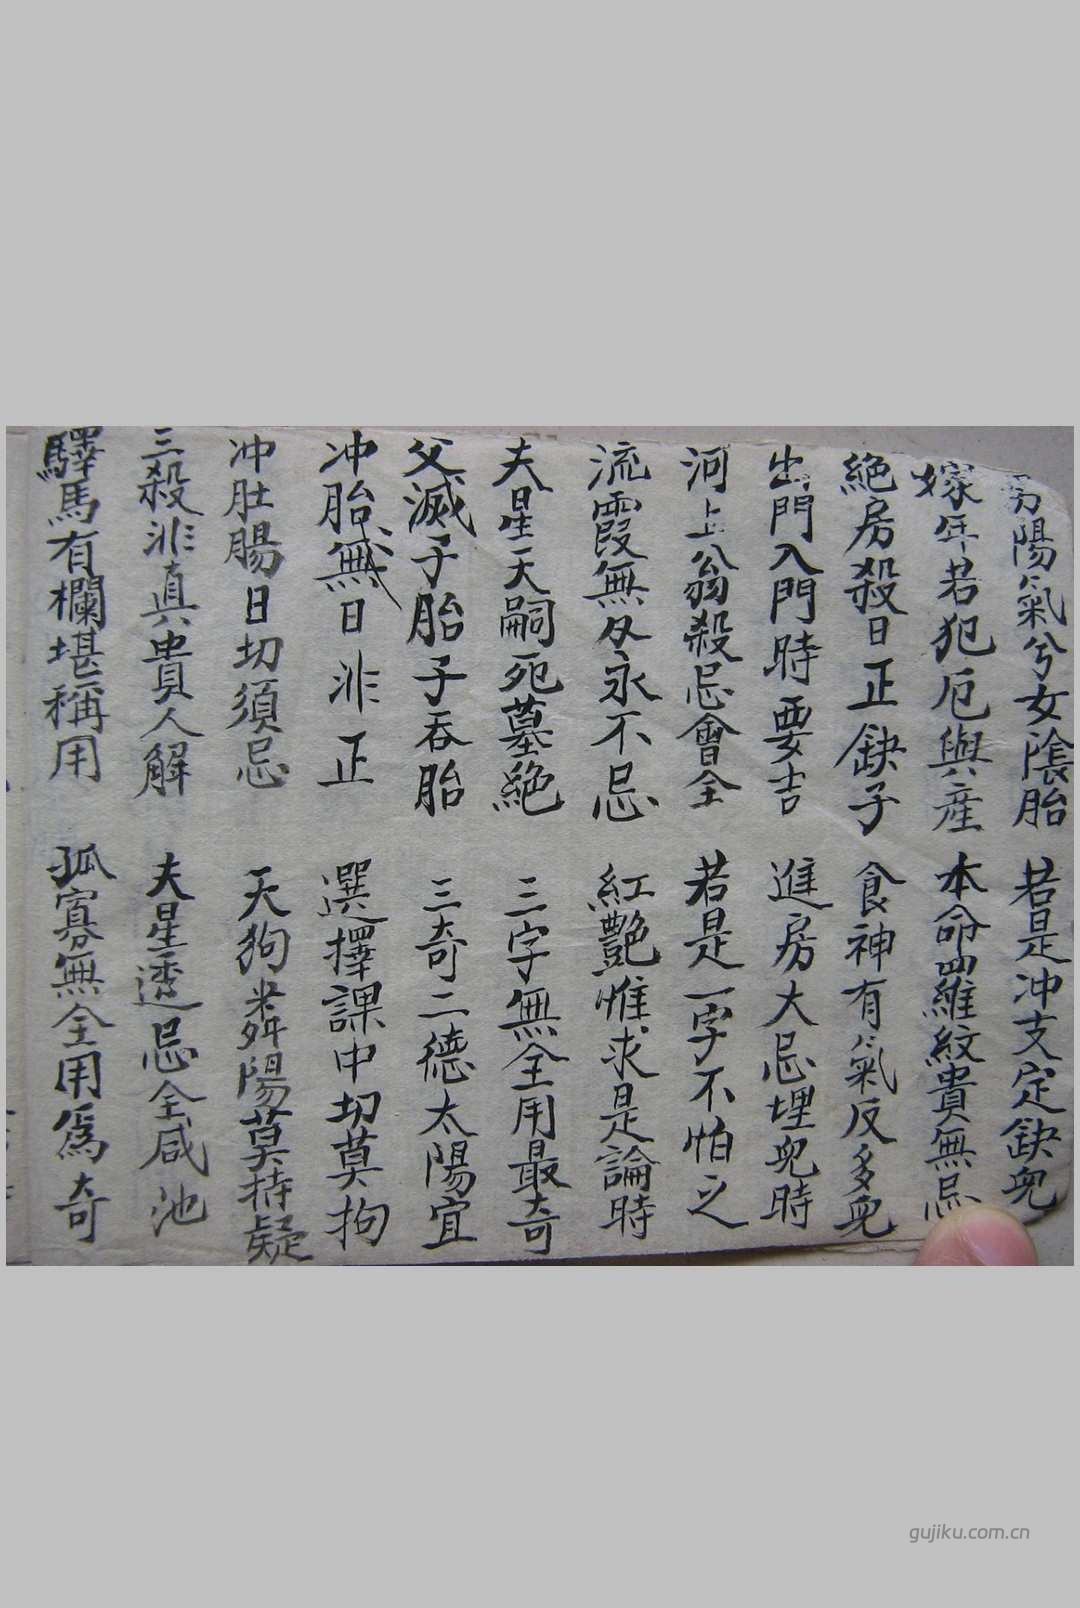 男陽氣兮女陰胎　若是冲支定缺兒
嫁年若犯厄與產　本命羅紋貴無忌
絕房殺日正缺子　食神有氣反多兒
出門入門時要吉　進房大忌埋兒時
河上翁殺忌會全　若是一字不怕之
流霞無刃永不忌　紅艷惟求是論時
夫星天嗣死墓絕　三字無全用最奇
父滅子胎子吞胎　三奇二德太陽宜
冲胎無日非正　選擇課中切莫拘
冲肚腸日切須忌　天狗麟陽莫持疑
三殺非真貴人解　夫星透忌全咸池
驛馬有欄堪稱用　孤寡無全用為奇
gujiku.com.cn